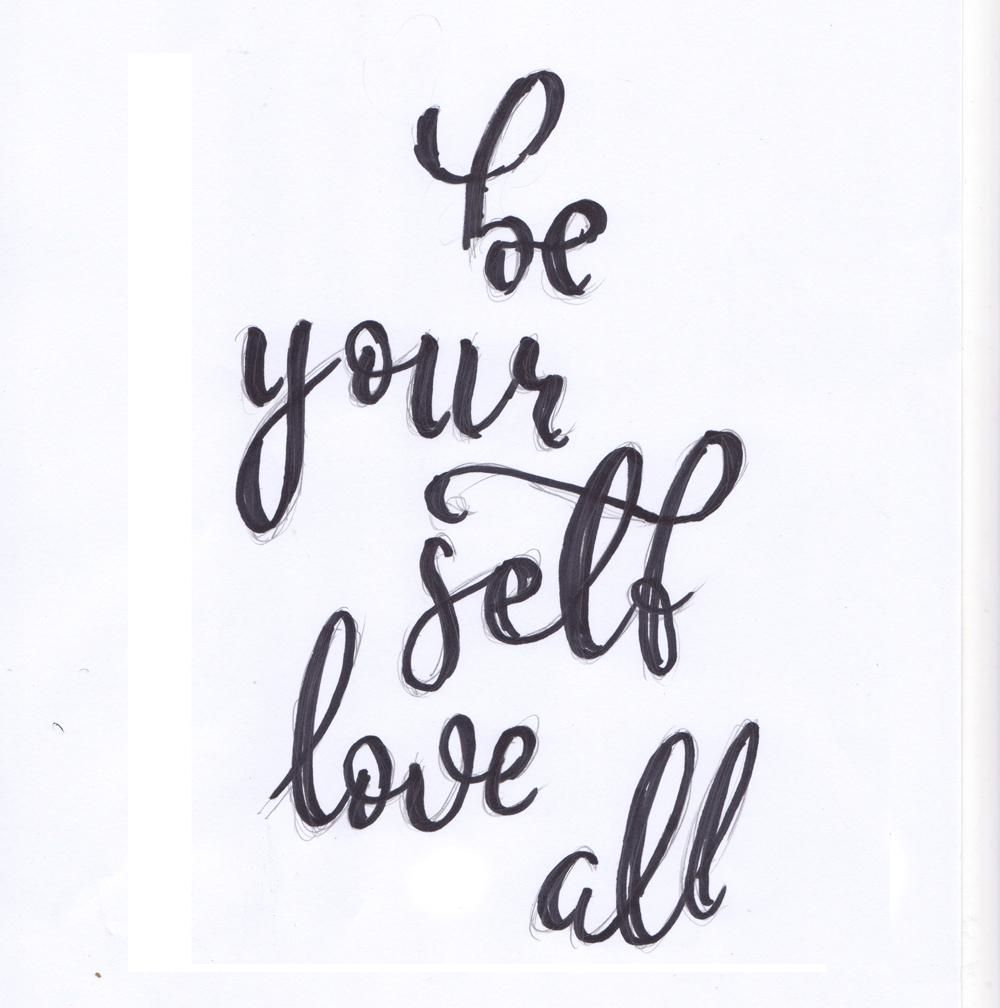 be
your
self
love
all